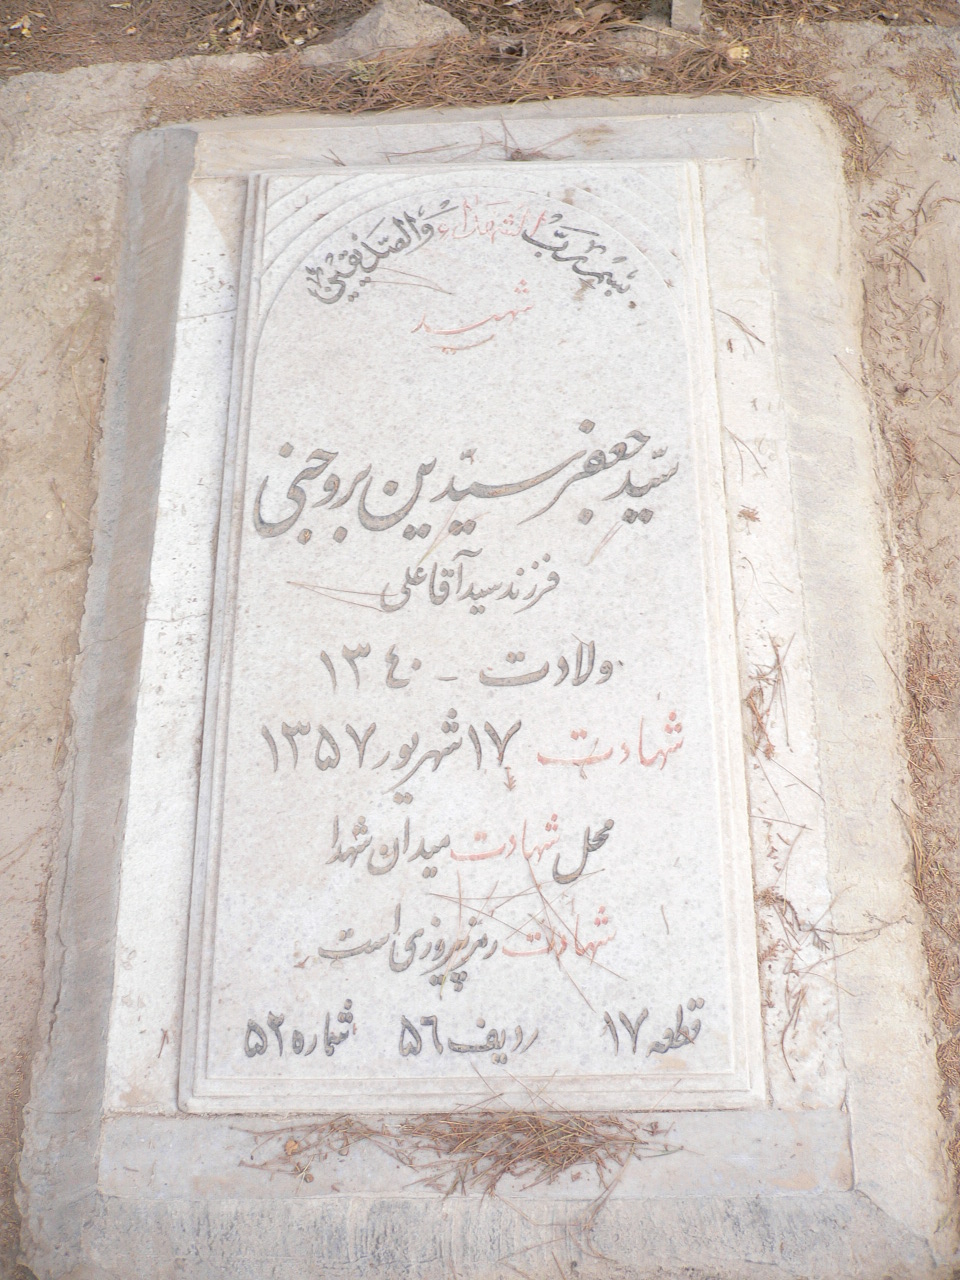 بسم رب الشهداء والصدیقین
شهید
سید جعفر سیدین بروجنی
فرزند سید آقا علی
ولادت - ۱۳۴۰
شهادت ۱۷ شهریور ۱۳۵۷
محل شهادت میدان شهدا
شهادت رمز پیروزی است
قطعه ۱۷ ردیف ۵۶ شماره ۵۲